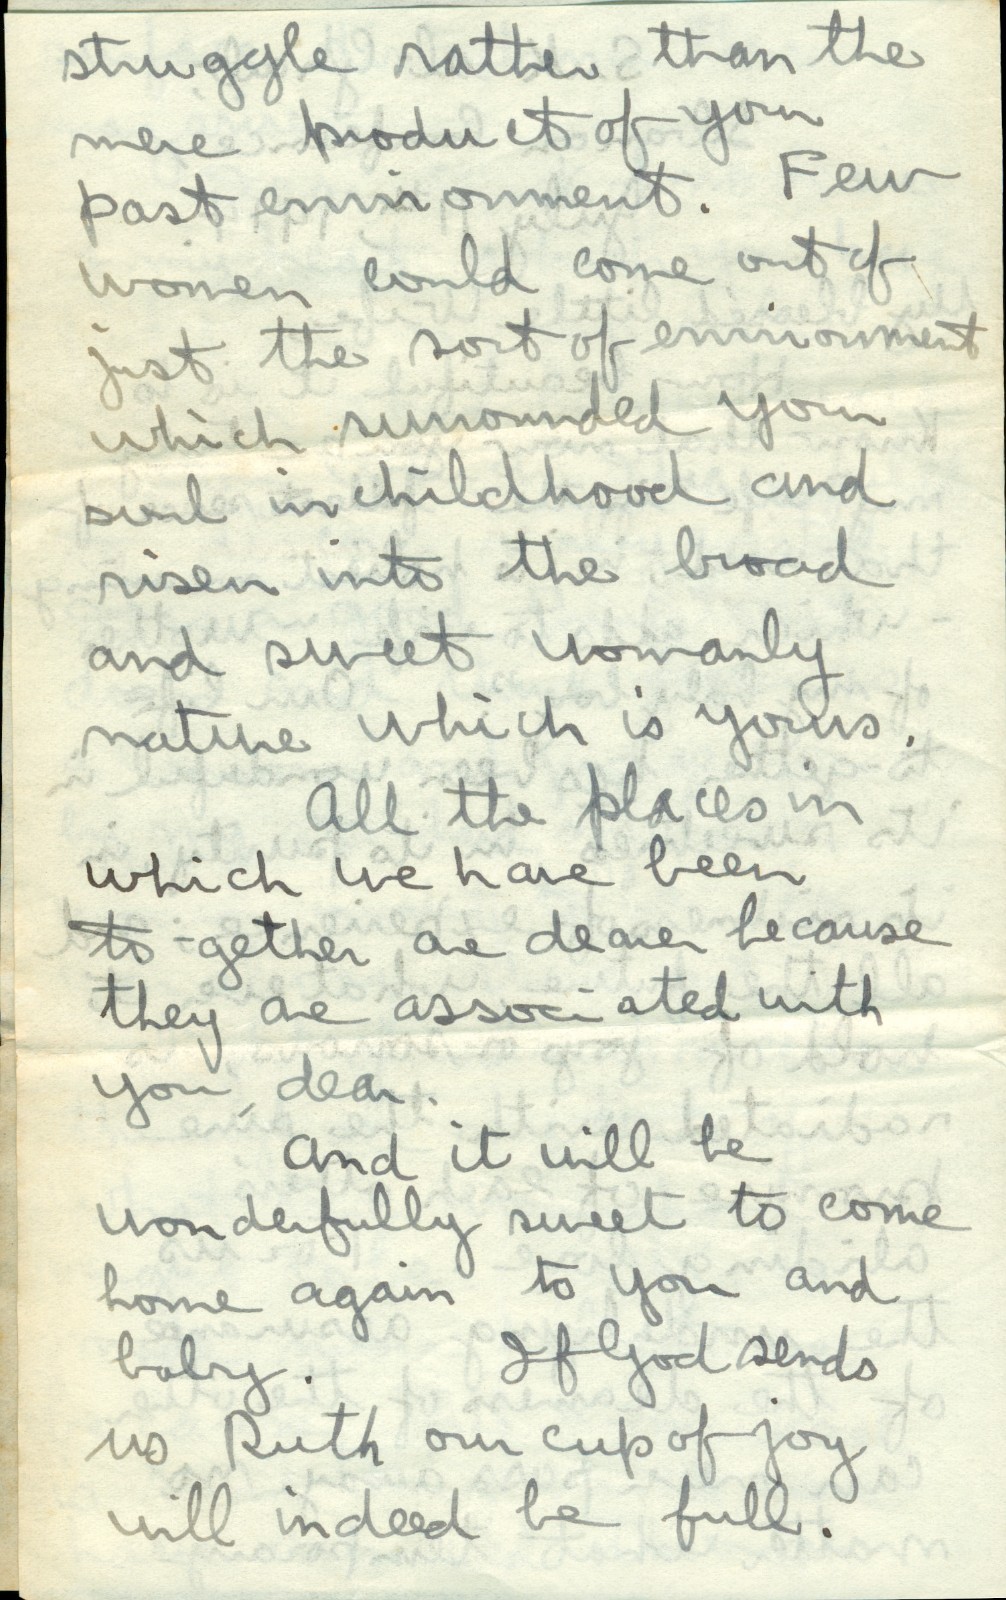 struggle rather than the
mere product of your
past environment. Few
women could come out of
just the sort of environment
which surrounded your
soul in childhood and
risen into the broad
and sweet womanly
nature which is yours.
All the places in
which we have been
to-gether are dearer because
they are associated with
you, dear.
And it will be
wonderfully sweet to come
home again to you and
baby. If God sends
us Ruth our cup of joy
will indeed be full.